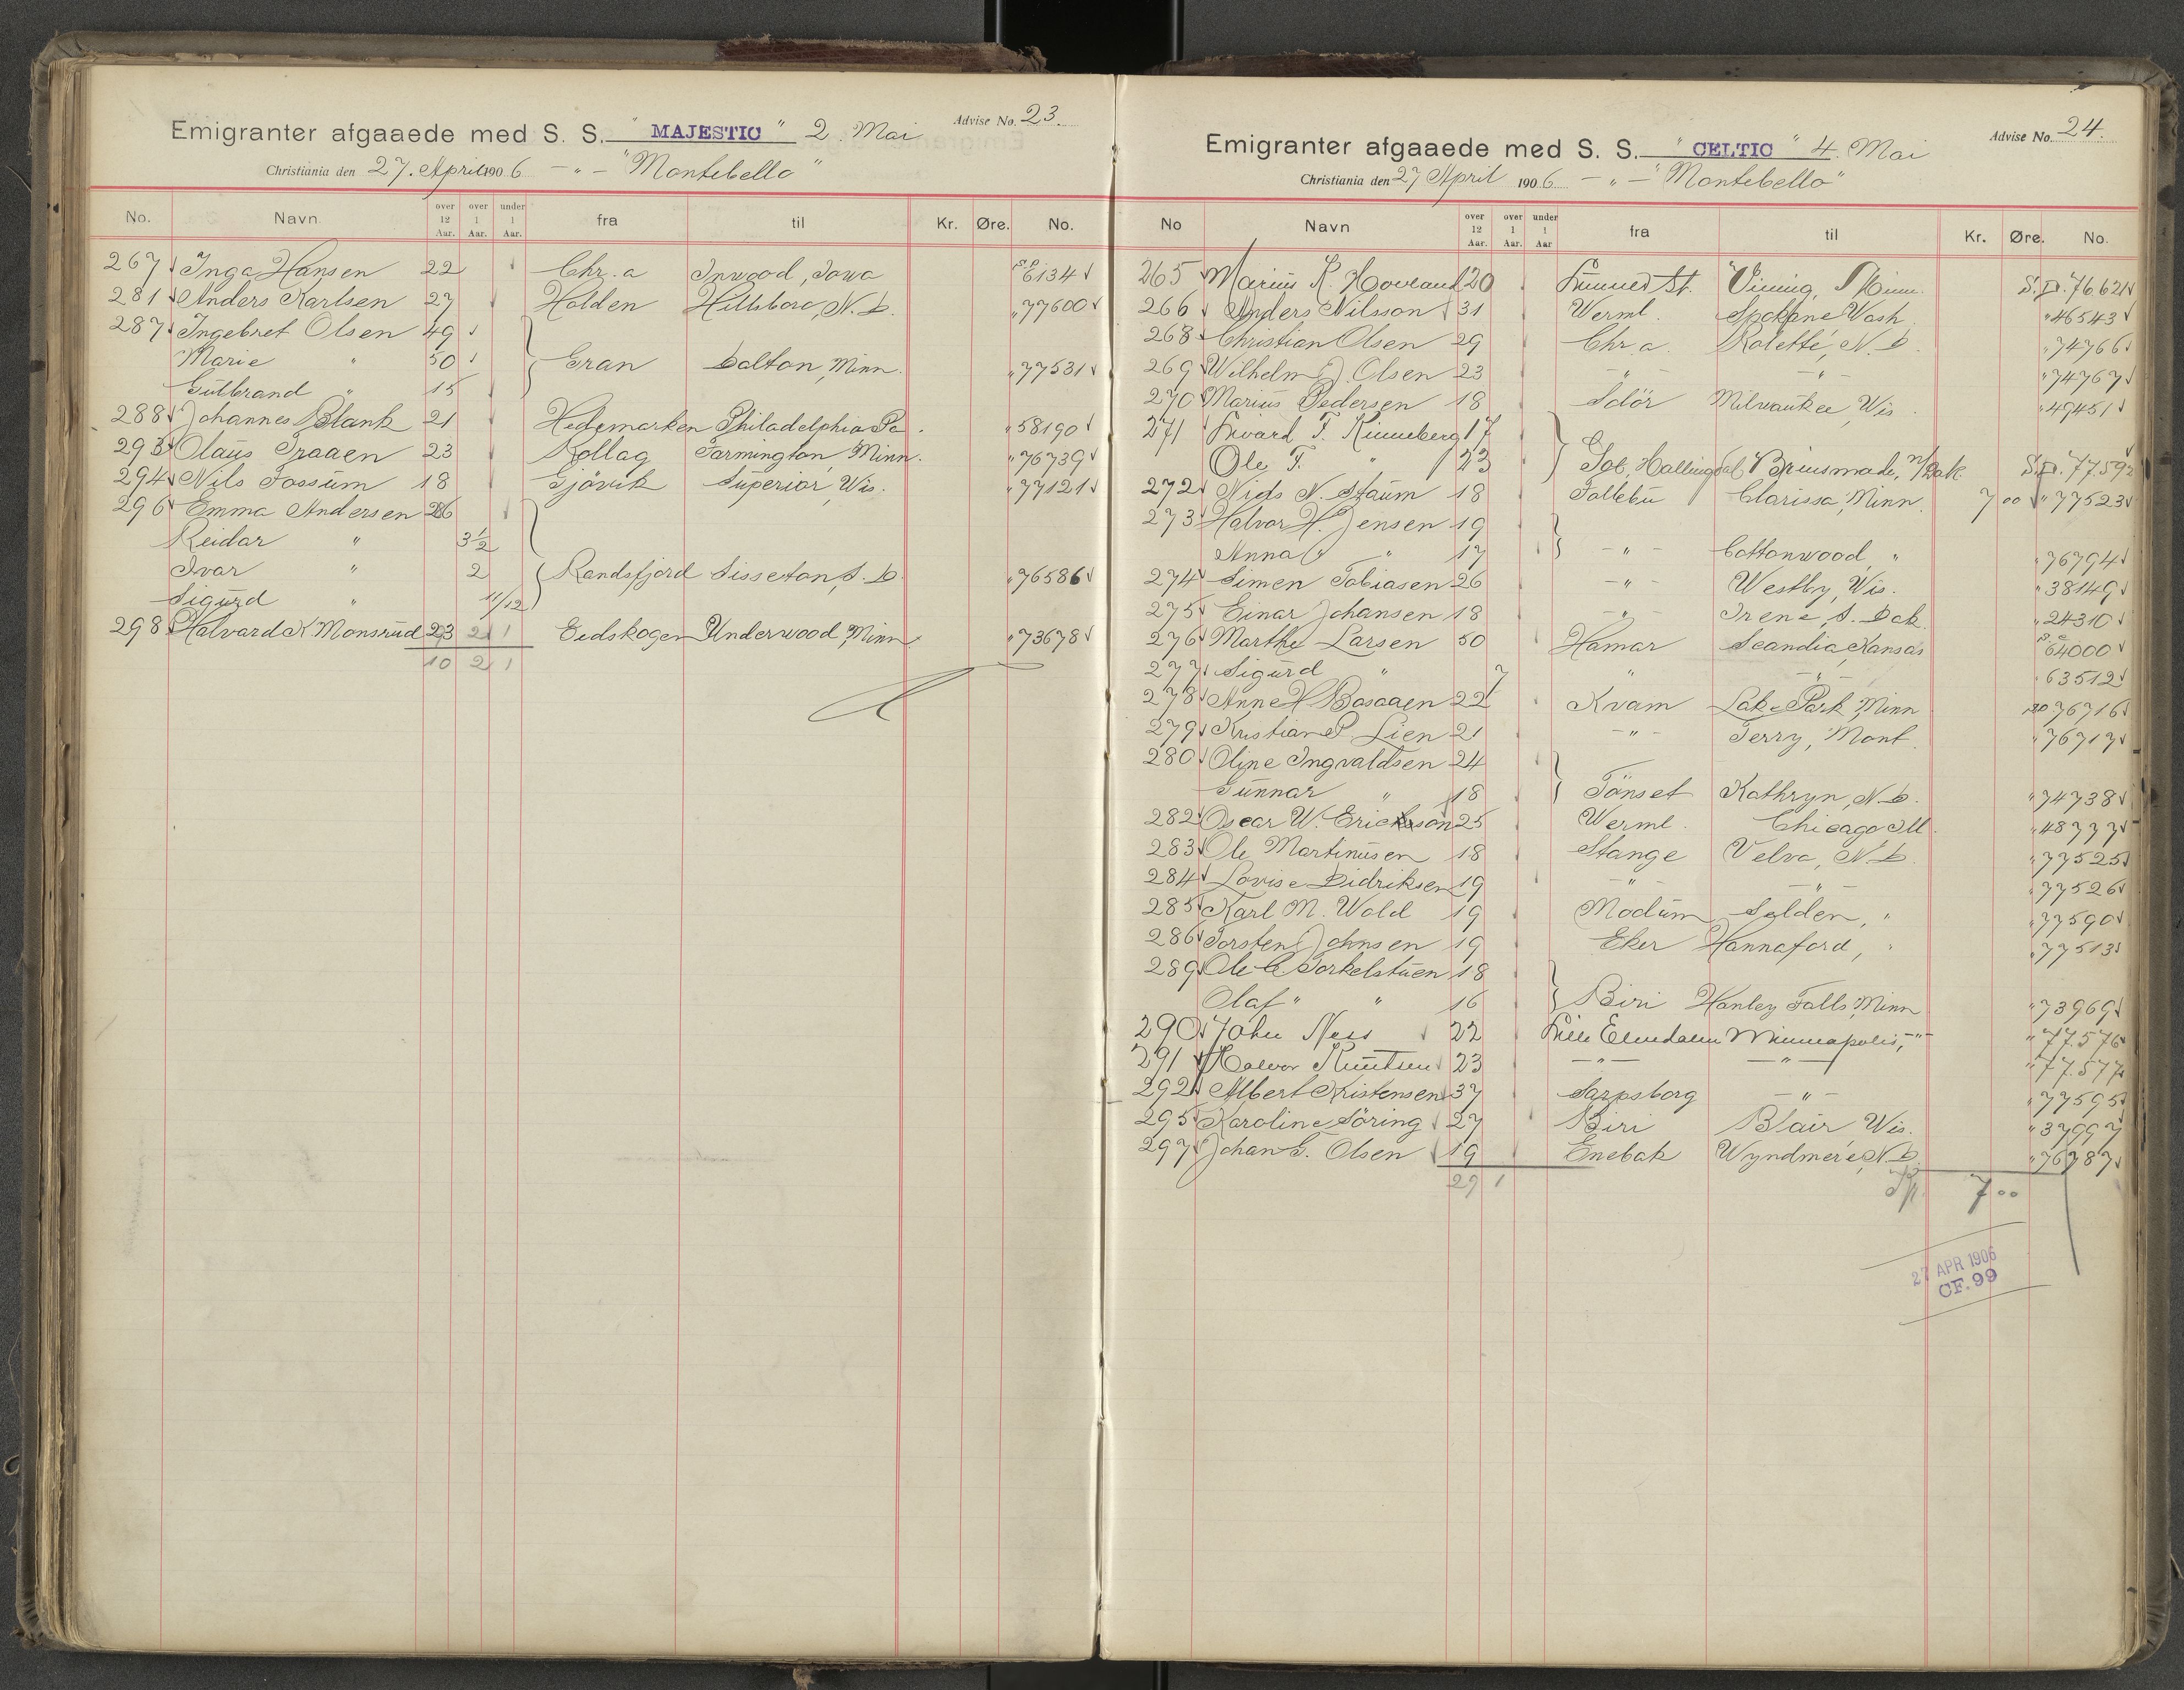 Emigranter afgaaede med S. S. " MAJESTIC " 2. Mai Advise No. 23.
Christiania den 27. April 1906 - " - "Montebello"
No. Navn over 12 Aar. over 1 Aar. under 1 Aar. fra til Kr. Øre. No.
267 Inga Hansen 22 Chr.a Inwood, Iowa S.P. 6134
281 Anders Karlsen 27 Holden Hillsboro, N. D. " 77600
287 Ingebret Olsen 49
Marie " 50 Gran Dalton, Minn. " 77531
Gulbrand " 15
288 Johannes Blank 21 Hedemarken Philadelphia Pa. " 58190
293 Olaus Traaen 23 Rollag Farmington, Minn. " 76739
294 Nils Fossum 18 Gjövik Superior, Wis. " 77121
296 Emma Andersen 26
Reidar " 3½
Ivar " 2 Randsfjord Sisseton, S. D. " 76586
Sigurd " 11/12
298 Halvard K Monsrud 23 2 1 Eidskogen Underwood, Minn. " 73678
10 2 1
Emigranter afgaaede med S. S. " CELTIC " 4. Mai Advise No. 24.
Christiania den 27 April 1906 - " - "Montebello"
No Navn over 12 Aar. over 1 Aar. under 1 Aar fra til Kr. Øre. No.
265 Marius K. Hovland 20 Vining, Minn. S.P. 76621
266 Anders Nilsson 31 Werml. Spokane Wash. " 46543
268 Christian Olsen 29 Chr.a. Rolette, N. D. " 74766
269 Wilhelm J. Olsen 23 - " - - " - " 74767
270 Marius Pedersen 18 Solör Milvaukee, Wis. " 49451
271 T. Kinneberg 17
Ole T. " 23 Gol, Hallingdal Brinsmade, N/Dak. S.P. 77.592
272 N. Staum 18 Follebu Clarissa, Minn. 7 00 " 77523
273 Halvor H. Jensen 19
Anna " 17 - " - Cottonwood, " " 76794
274 Simen Tobiasen 26 - " - Westby, Wis. " 38149
275 Einar Johansen 18 - " - Irene, S. Dak. " 24310
276 Marthe Larsen 50 Hamar Scandia, Kansas 64000
277 Sigurd " 7 " - " - " 63512
278 Anne H Bosaaen 22 Kvam Lake Park, Minn 76716
279 Kristian P. Lien 21 - " - Terry, Mont. " 76717
280 Oline Ingvaldsen 24
Gunnar " 18 Tönset Kathryn, N. D. " 74738
282 Oscar W. Erickson 25 Werml. Chicago Ill. " 48777
283 Ole Martinusen 18 Stange Velva, N. D. " 77525
284 Lovise Didriksen 19 - " - - " - " 77526
285 Karl M. Wold 19 Modum Selden, " " 77590
286 Torsten Johnsen 19 Eker Hannaford, " " 77513
289 Ole C. Torkelstuen 18
Olaf " " 16 Biri Hanley Falls, Minn " 73969
290 John Ness 22 Lille Elvedalen Minneapolis, - " - " 77.576
291 Halvor Knutsen 23 - " - - " - " 77.577
292 Albert Kristensen 37 Sarpsborg - " - " 77595
295 Karoline Söring 27 Biri Blair Wis. " 37997
297 Johan G. Olsen 19 Enebak Wyndmere, N. D. " 76787
29 1 7 00
27 APR 1906
CF. 99